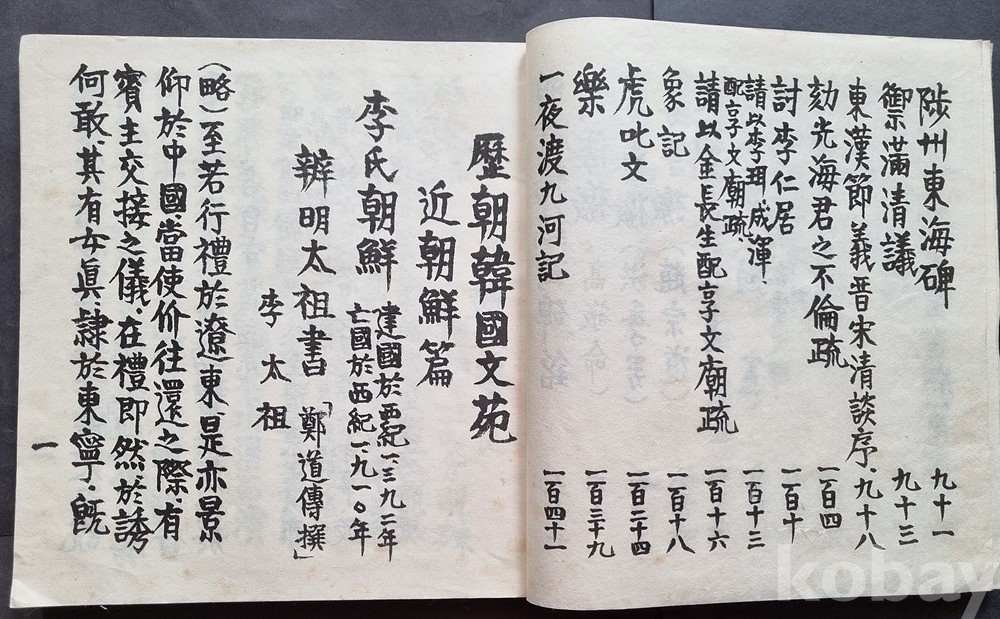 陟州東海碑 九十一
禦滿清議 九十三
東漢節義晋宋清談序 九十八
劾光海君之不倫疏 一百四
討李仁居 一百十
請以李珥成渾配享文廟疏 一百十三
請以金長生配享文廟疏 一百十六
象記 一百十八
虎叱文 一百二十四
樂 一百三十九
一夜渡九河記 一百四十一
歷朝韓國文苑
近朝鮮篇
李氏朝鮮 建國於西紀一三九二年
亡國於西紀一九一〇年
辨明太祖書「鄭道傳撰」
李太祖
(略)至若行禮於遼東、是亦景
仰於中國當使价往還之際、有
賓主交接之儀、在禮即然、於誘
何敢、其有女眞、隷於東寧、旣
一
kobay